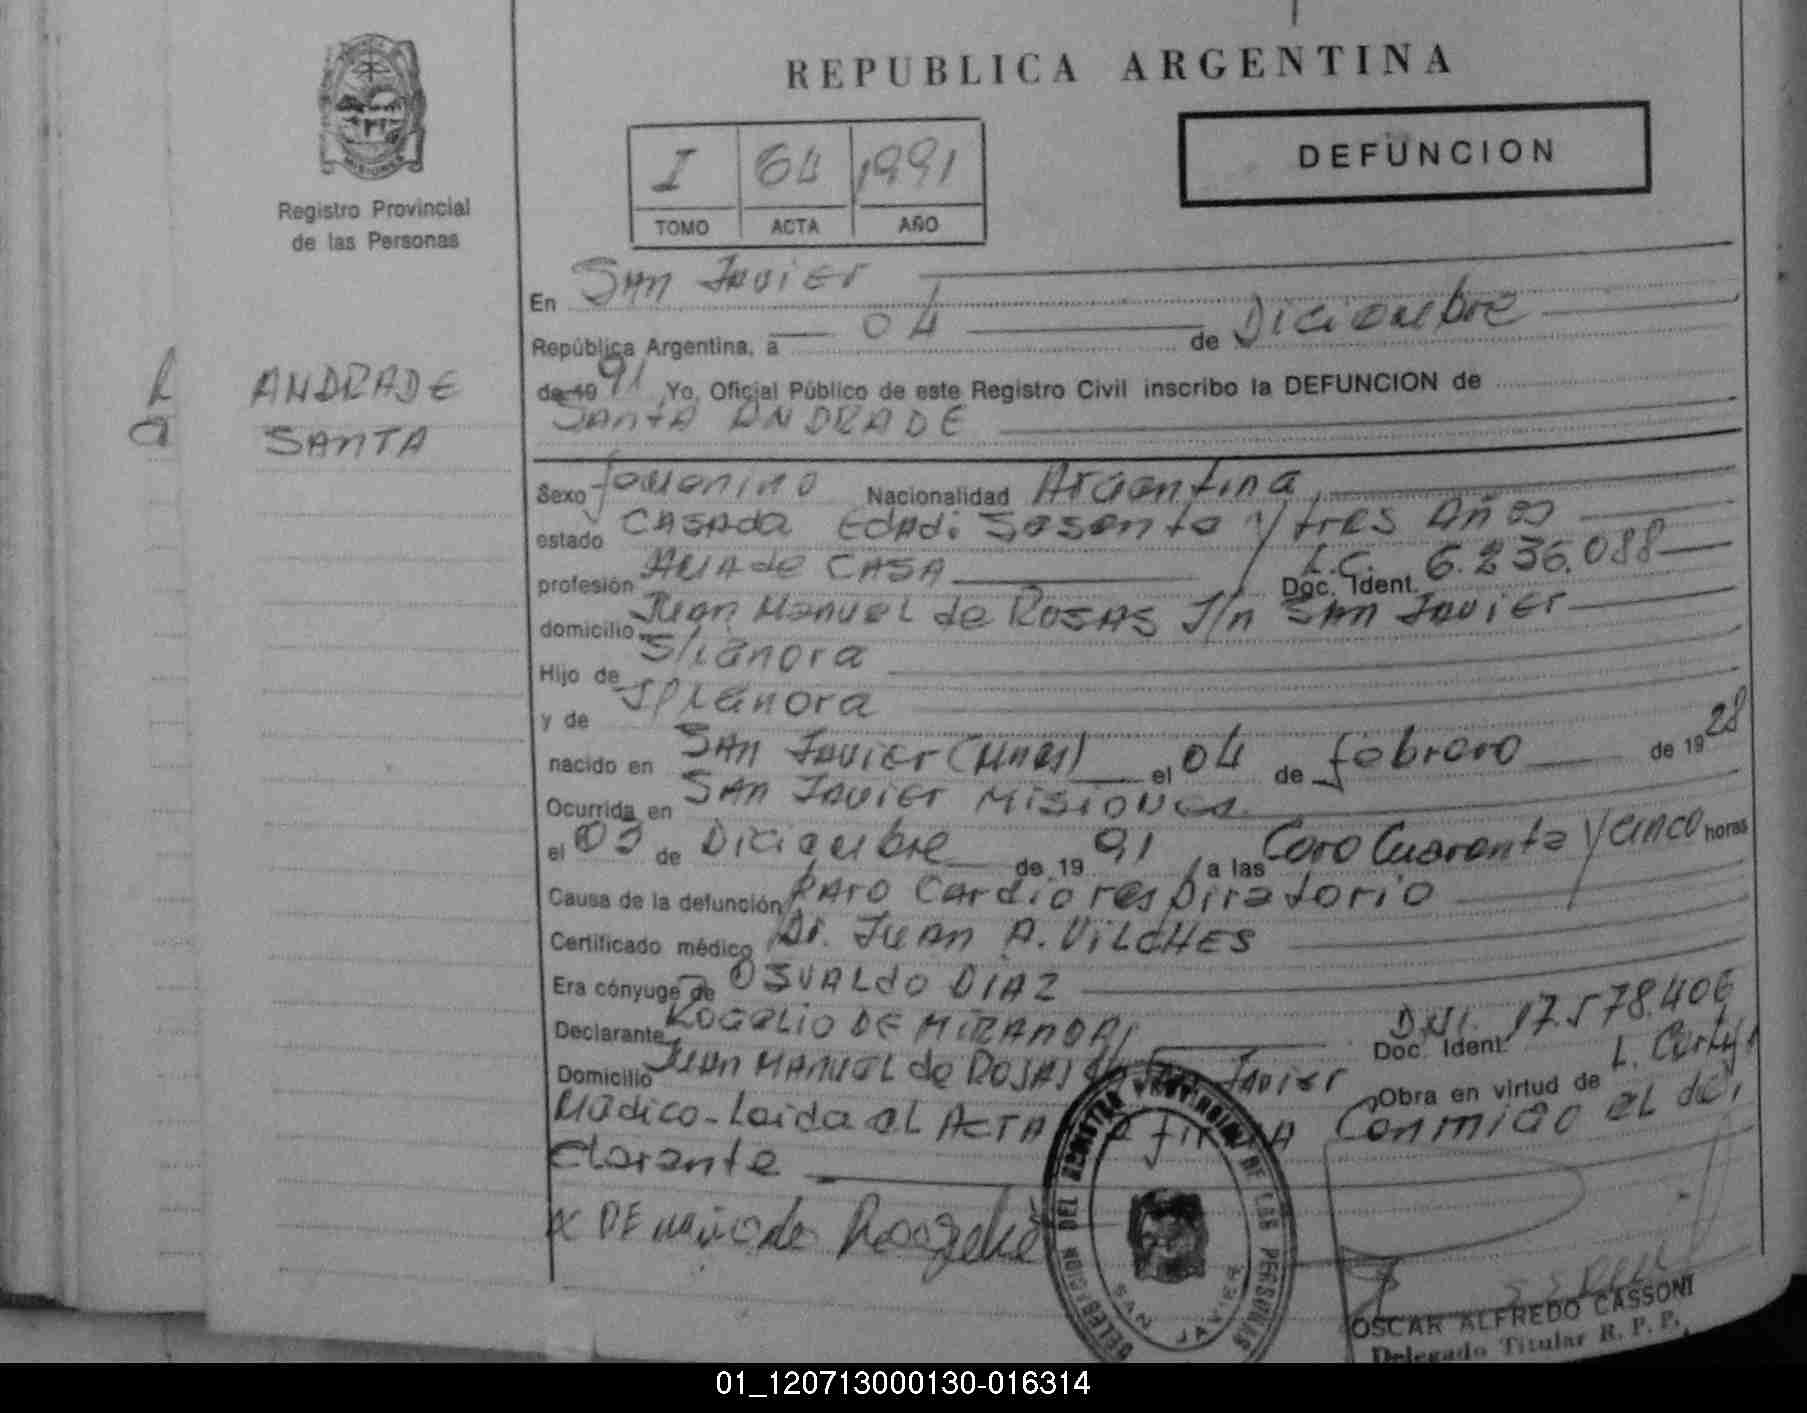 REPUBLICA ARGENTINA
MISIONES
Registro Provincial
de las Personas
I 64 1991
TOMO ACTA AÑO
DEFUNCION
ANDRADE
SANTA
En San Javier
República Argentina, a 04 de Diciembre
de 19 91 Yo, Oficial Público de este Registro Civil inscribo la DEFUNCION de
Santa ANDRADE
Sexo femenino Nacionalidad Argentina
estado CASADA EDAD: Sesenta y tres Años
profesión AMA de CASA Doc. Ident. L.C. 6.236.088
domicilio Juan Manuel de ROSAS S/n SAN JAVIER
Hijo de S/
y de
nacido en SAN JAVIER (Mnes) el 04 de febrero de 1928
Ocurrida en SAN JAVIER MISIONES
el 03 de Diciembre de 19 91 a las Cero Cuarenta y cinco horas
Causa de la defunción PARO Cardiorespiratorio
Certificado médico Dr. JUAN A. VILCHES
Era cónyuge de OSVALDO DIAZ
Declarante ROGELIO DE MIRANDA Doc. Ident. D.N.I. 17.578.406
Domicilio Juan MANUEL de ROSAS Javier Obra en virtud de
Médico-Leída el ACTA la firma Conmigo el de
clarante
x DE Rogelio
DELEGACION DEL REGISTRO PROVINCIAL DE LAS PERSONAS
SAN JAVIER
OSCAR ALFREDO CASSONI
Delegado Titular R. P. P.
01_120713000130-016314